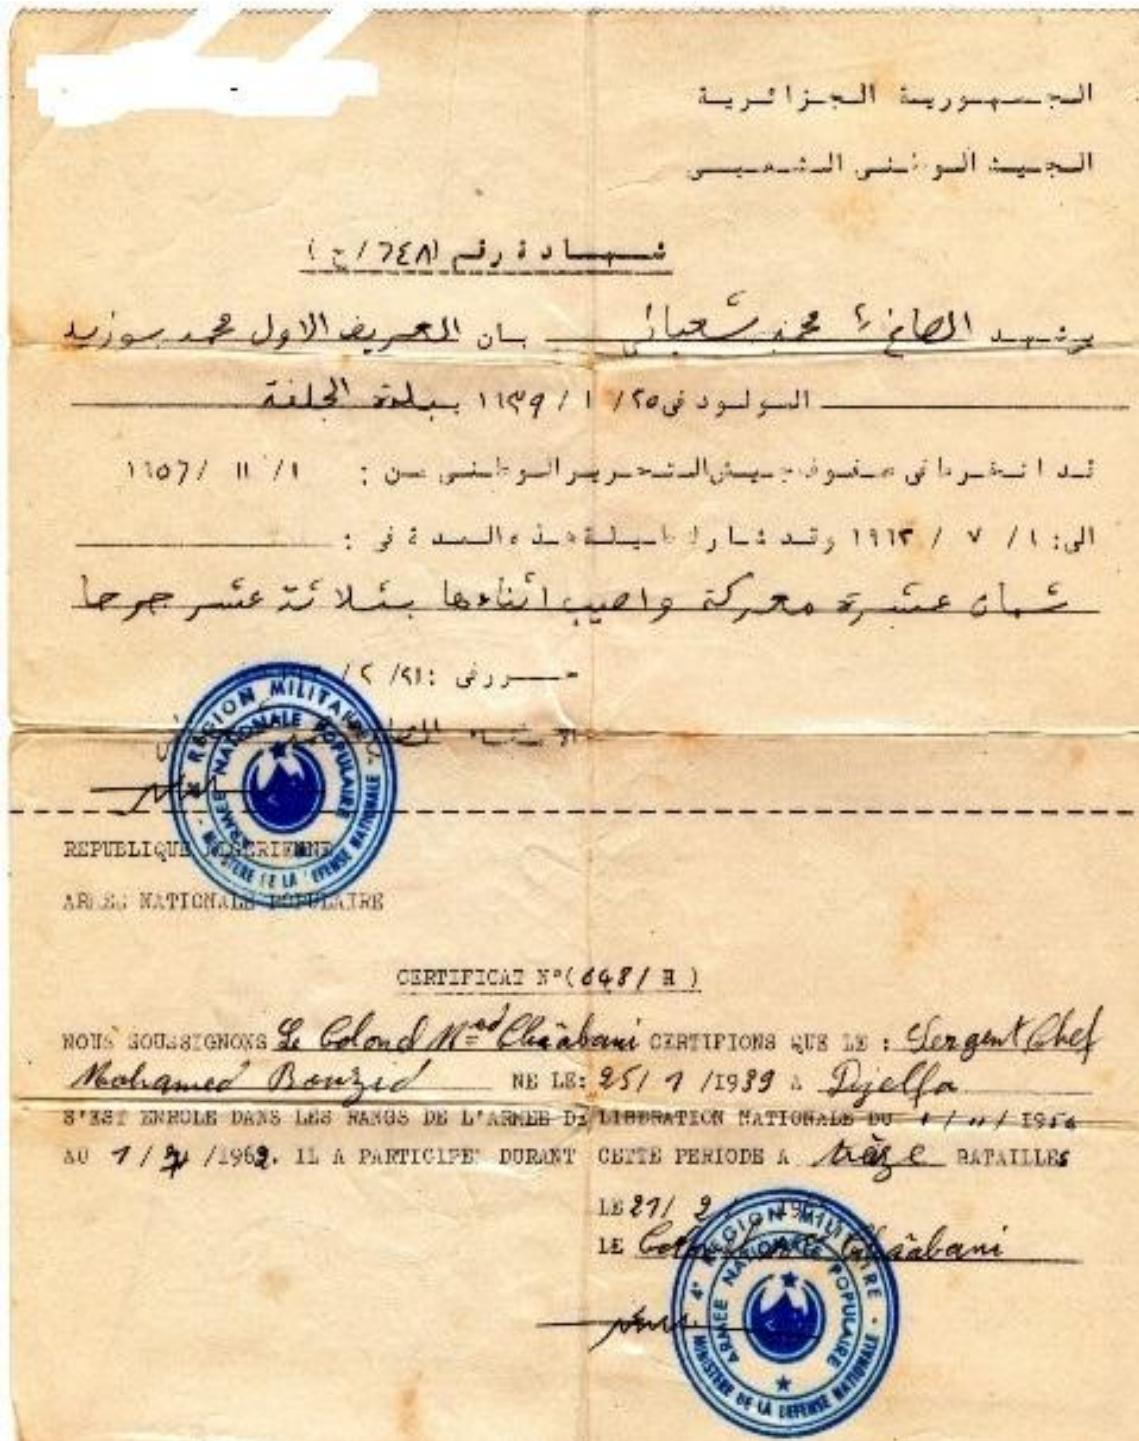 الجمهورية الجزائرية
الجيش الوطني الشعبي
شهادة رقم (٦٤٨/ح)
يشهد الصاغ ٢ محمد شعباني بان العريف الاول محمد بوزيد
المولود في ٢٥/ ١ / ١٩٣٩ ببلدة الجلفة
قد انخرط في صفوف جيش التحرير الوطني من : ١/ ١١ /١٩٥٦
الى: ١/ ٧ / ١٩٦٢ وقد شارك طيلة هذه المدة في :
ثمان عشرة معركة واصيب اثناءها بثلاثة عشر جرحا
حرر في :٢١/ ٢ /
الامضاء
4e REGION MILITAIRE - MINISTERE DE LA DEFENSE NATIONALE
ARMEE NATIONALE POPULAIRE
REPUBLIQUE ALGERIENNE
ARMEE NATIONALE POPULAIRE
CERTIFICAT N°(648/ H )
NOUS SOUSSIGNONS Le Colonel Med Chaâbani CERTIFIONS QUE LE : Sergent Chef
Mohamed Bouzid NE LE: 25/ 1 /1939 A Djelfa
S'EST ENROLE DANS LES RANGS DE L'ARMEE DE LIBERATION NATIONALE DU 1 / 11 / 1956
AU 1 / 7 /1962. IL A PARTICIPE DURANT CETTE PERIODE A trèze BATAILLES
LE 21/ 2 /
LE Colonel Med Chaâbani
4e REGION MILITAIRE - MINISTERE DE LA DEFENSE NATIONALE
ARMEE NATIONALE POPULAIRE